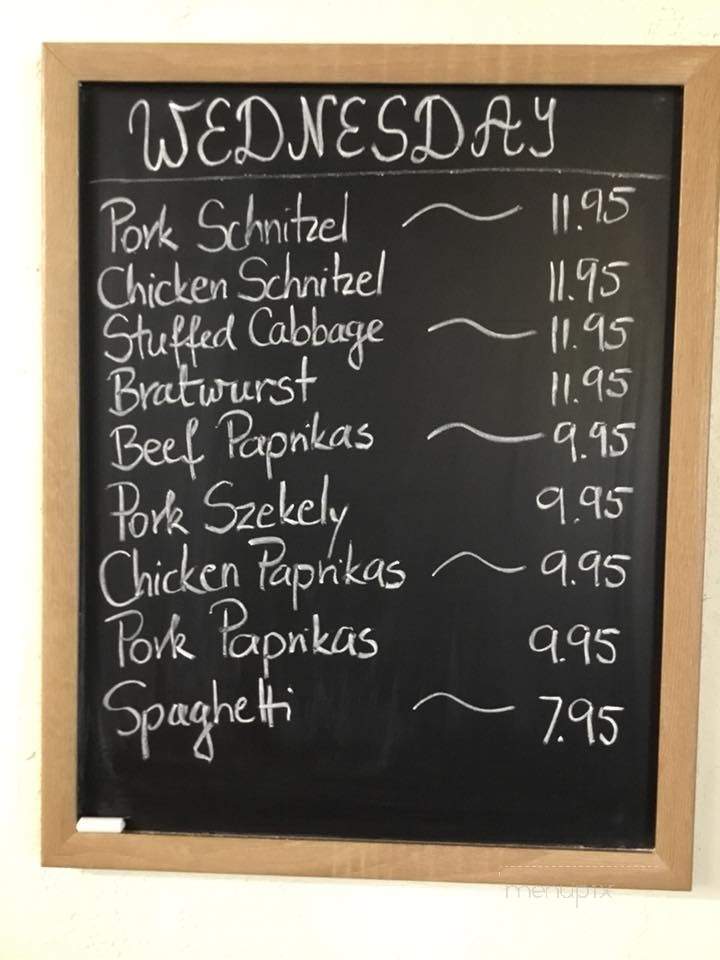 WEDNESDAY
Pork Schnitzel ~ 11.95
Chicken Schnitzel 11.95
Stuffed Cabbage ~ 11.95
Bratwurst 11.95
Beef Paprikas ~ 9.95
Pork Szekely 9.95
Chicken Paprikas ~ 9.95
Pork Paprikas 9.95
Spaghetti ~ 7.95
menupix